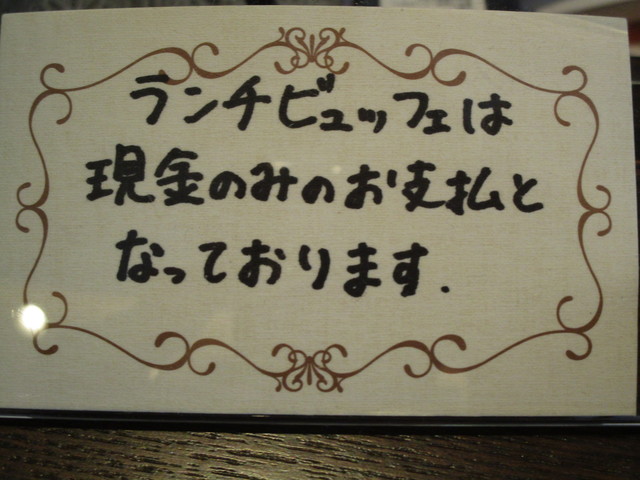 ランチビュッフェは
現金のみのお支払と
なっております.